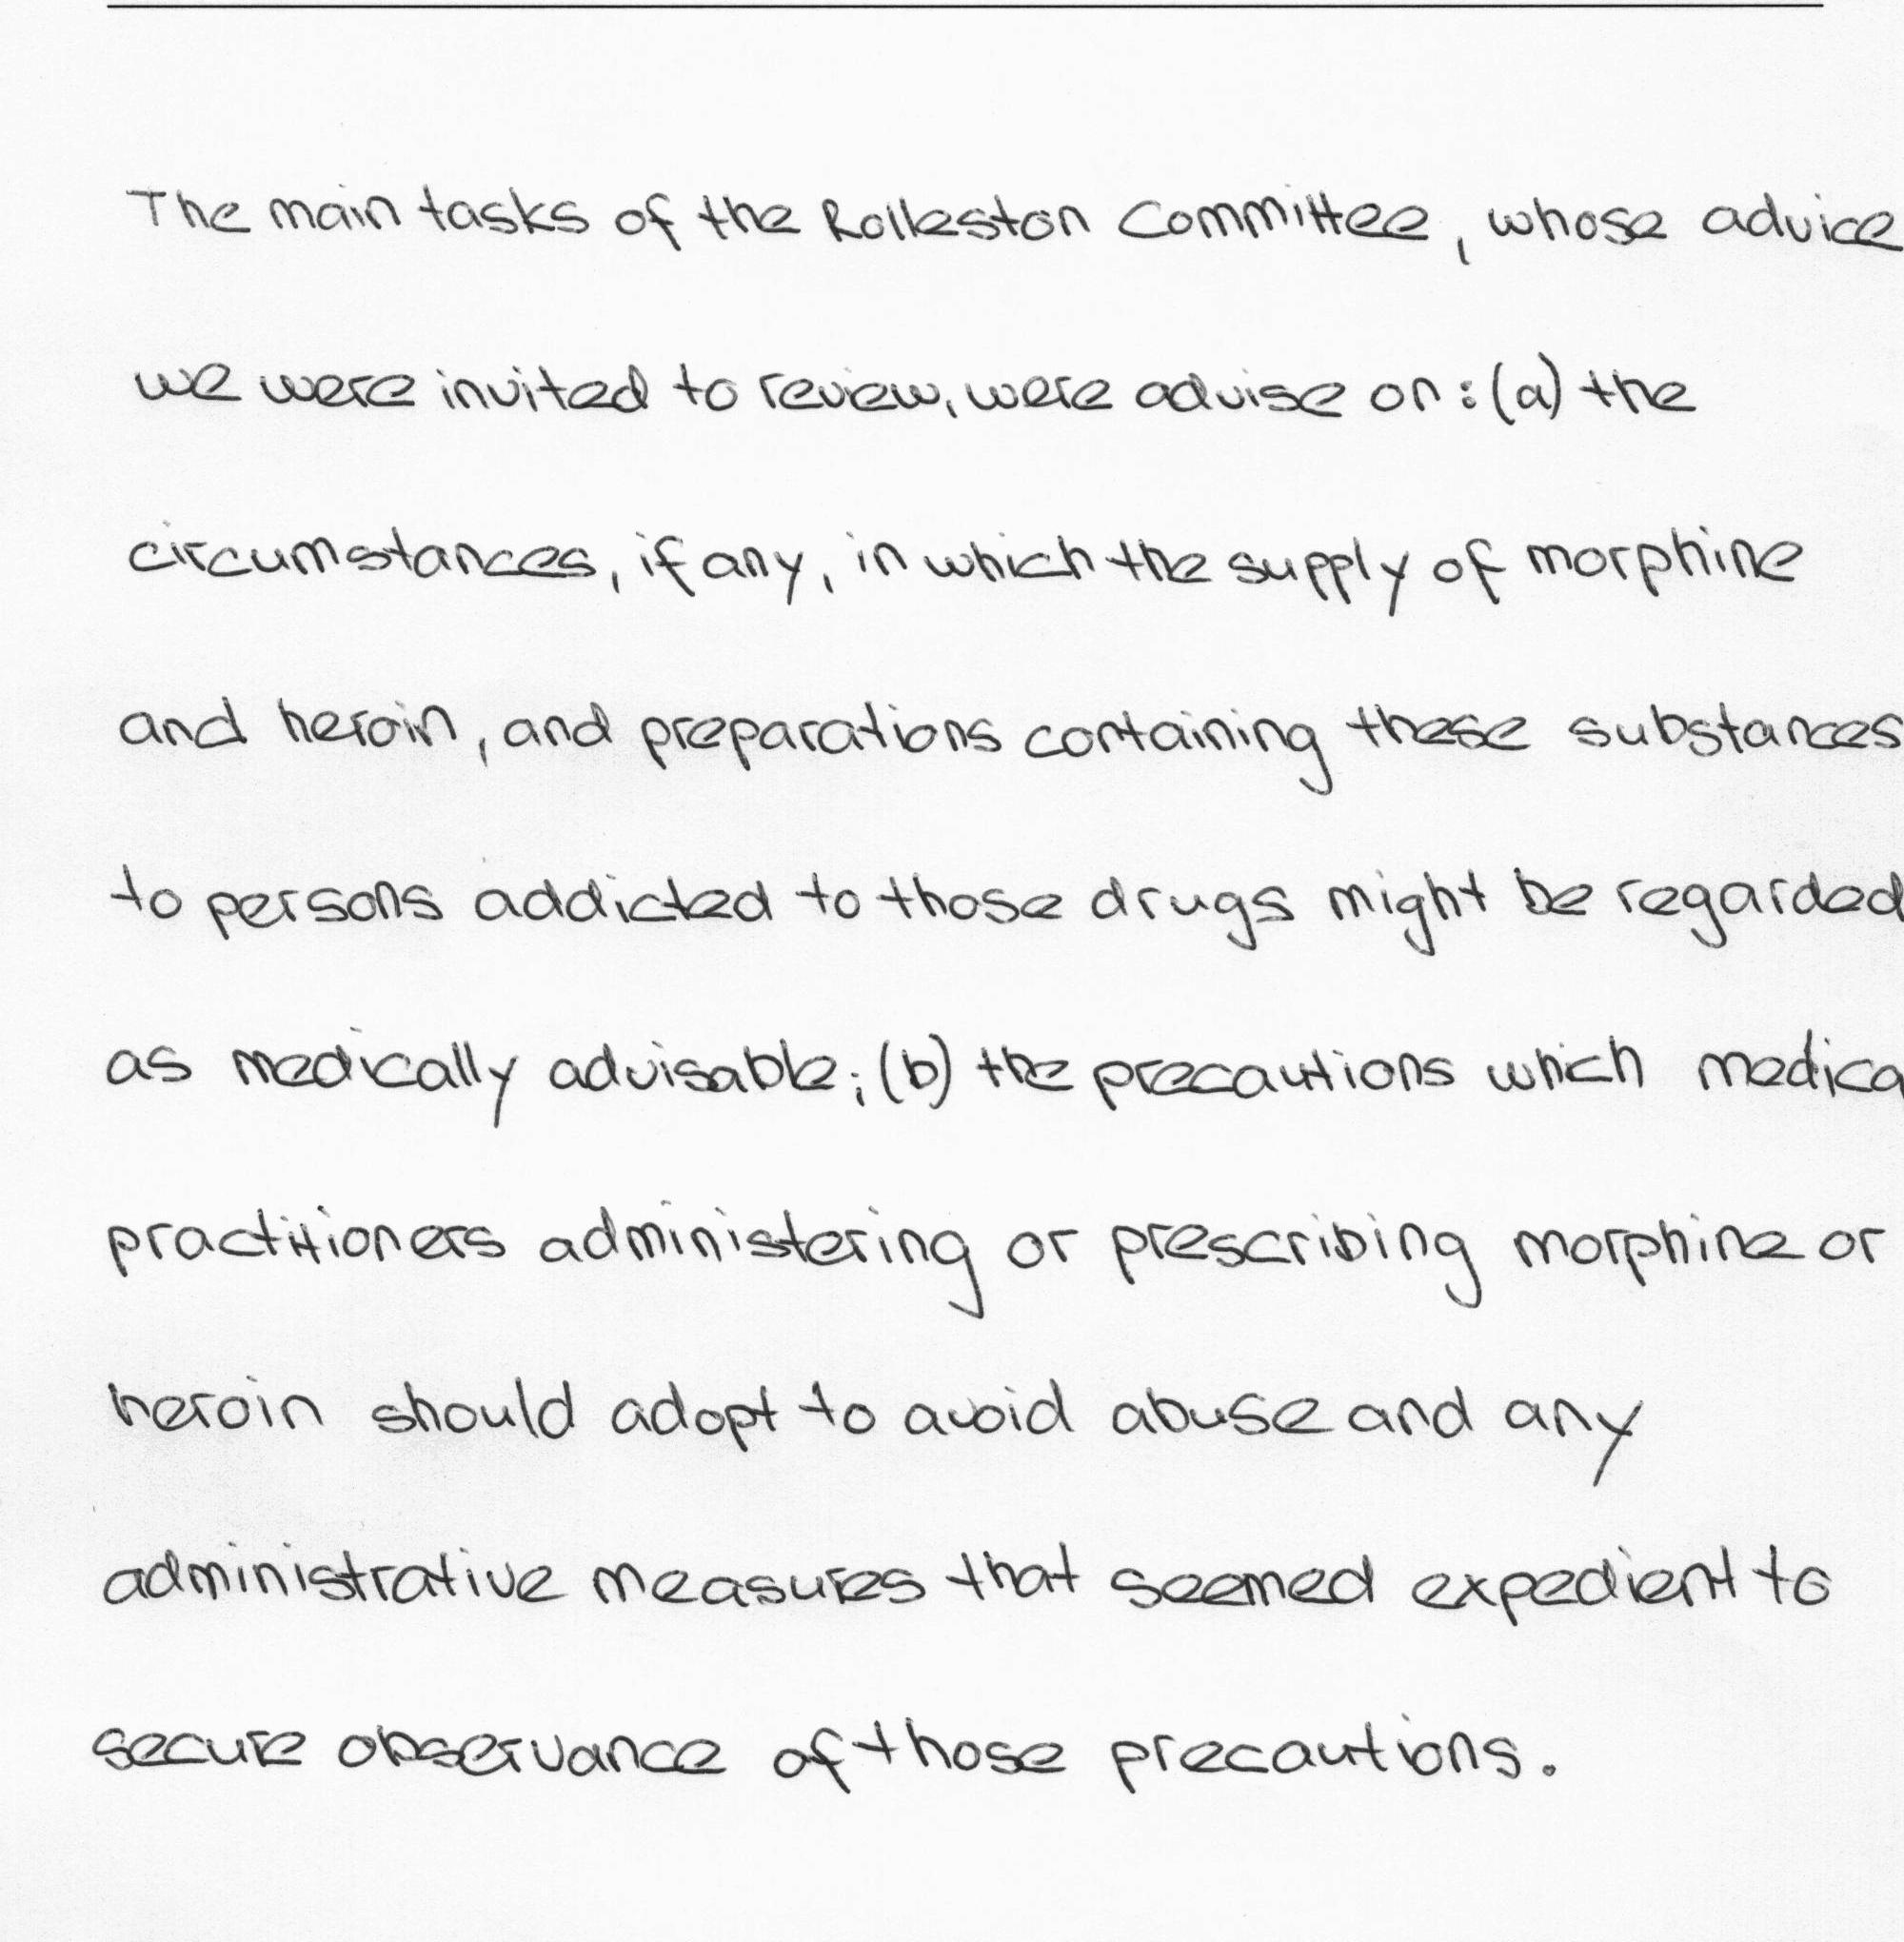 The main tasks of the Rolleston Committee, whose advice
we were invited to review, were advise on: (a) the
circumstances, if any, in which the supply of morphine
and heroin, and preparations containing these substances
to persons addicted to those drugs might be regarded
as medically advisable; (b) the precautions which medica
practitioners administering or prescribing morphine or
heroin should adopt to avoid abuse and any
administrative measures that seemed expedient to
secure observance of those precautions.